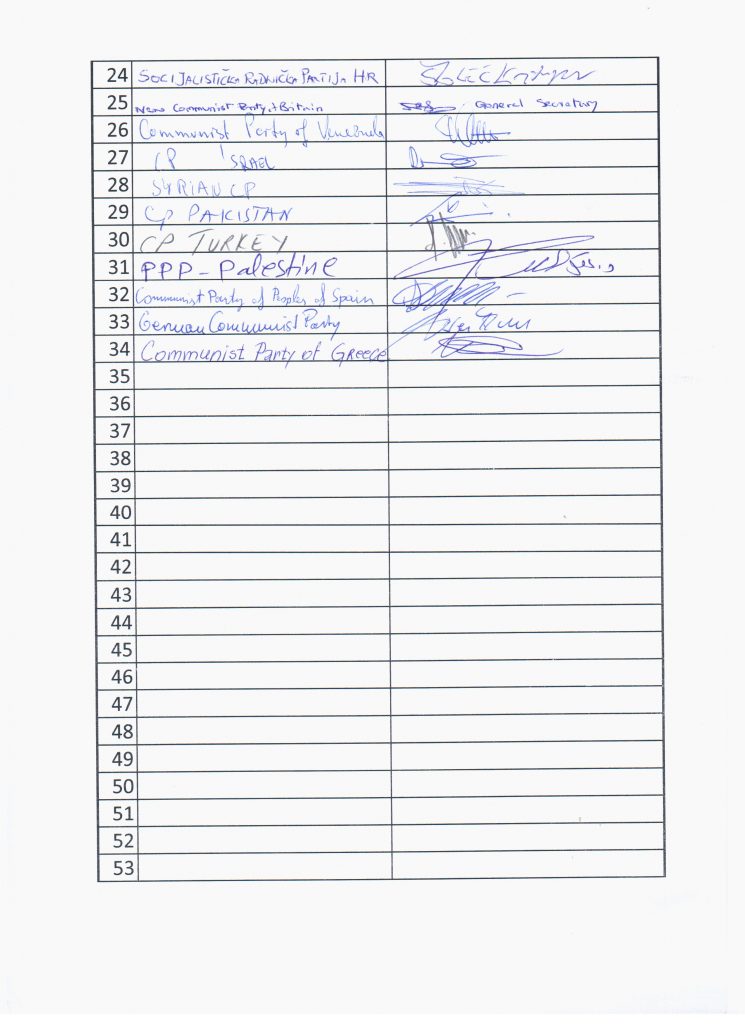 24 SOCIJALISTIČKA RADNIČKA PARTIJA HR
25 New Communist Party of Britain General Secretary
26 Communist Party of Venezuela
27 CP ISRAEL
28 SYRIAN CP
29 CP PAKISTAN
30 CP TURKEY
31 PPP - Palestine
32 Communist Party of Peoples of Spain
33 German Communist Party
34 Communist Party of GREECE
35
36
37
38
39
40
41
42
43
44
45
46
47
48
49
50
51
52
53